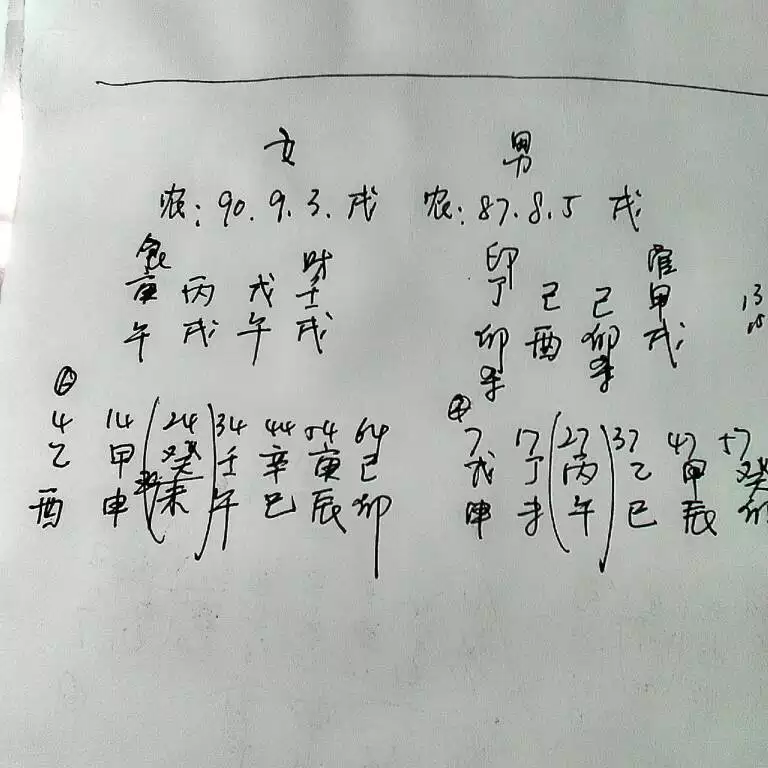 女 男
农: 90.9.3.戌 农: 87.8.5 戌
食 财 印 官
庚 丙 戊 壬 丁 己 己 甲
午 戌 午 戌 卯 酉 卯 戌
4 14 24 34 44 54 64 7 17 27 37 47 57
乙 甲 癸 壬 辛 庚 己 戊 丁 丙 乙 甲 癸
酉 申 未 午 巳 辰 卯 申 未 午 巳 辰 卯